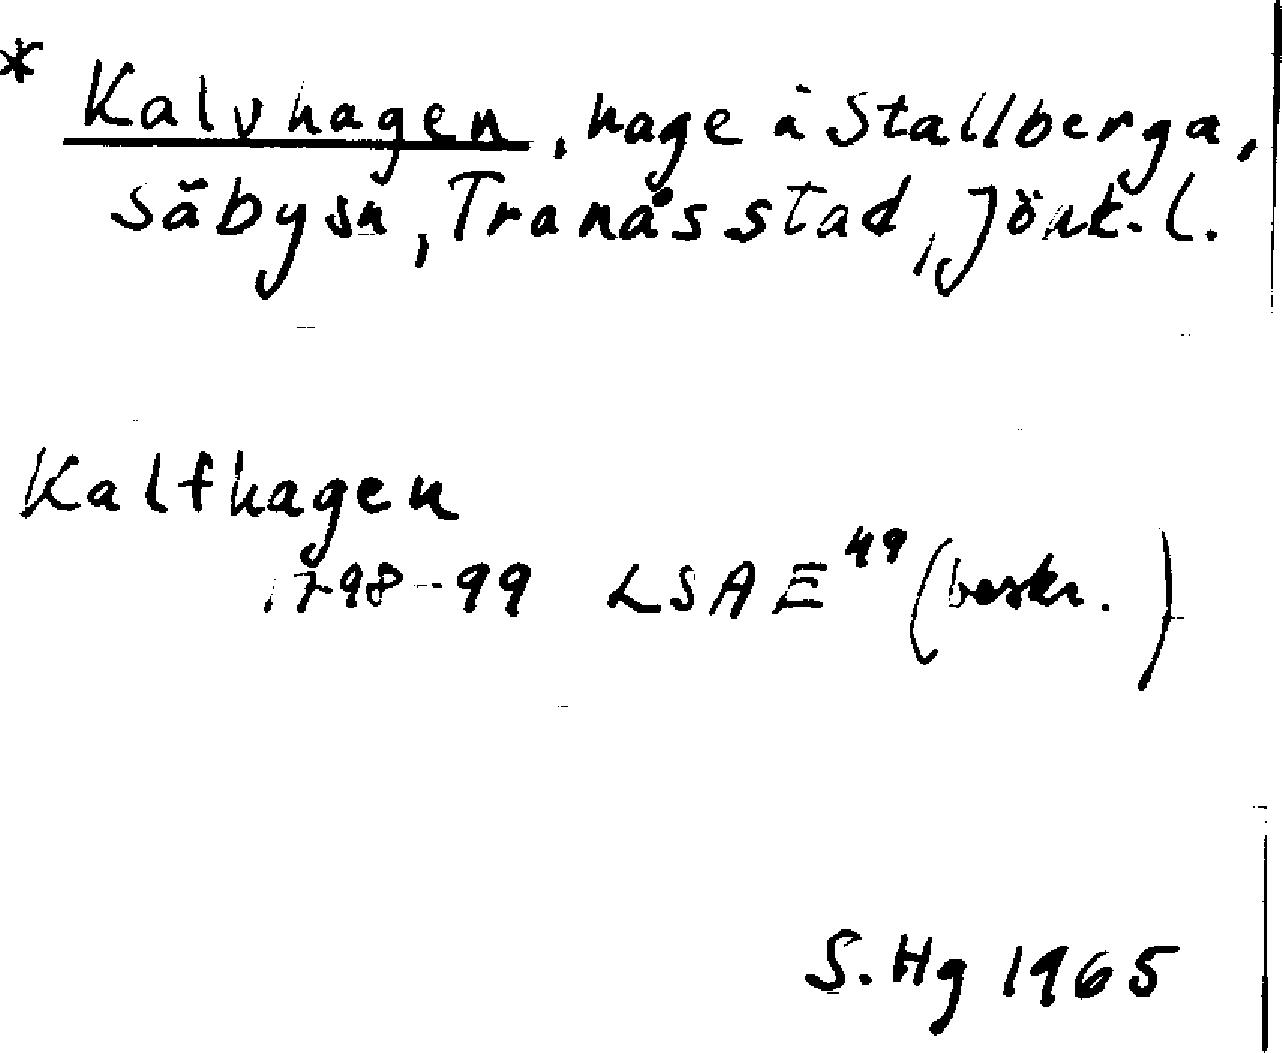 * Kalvhagen, hage å Stallberga,
Säby sn, Tranås stad, Jönk. l.
Kalfhagen
1798-99 LSA E 49 (beskr.)
S. Hg 1965